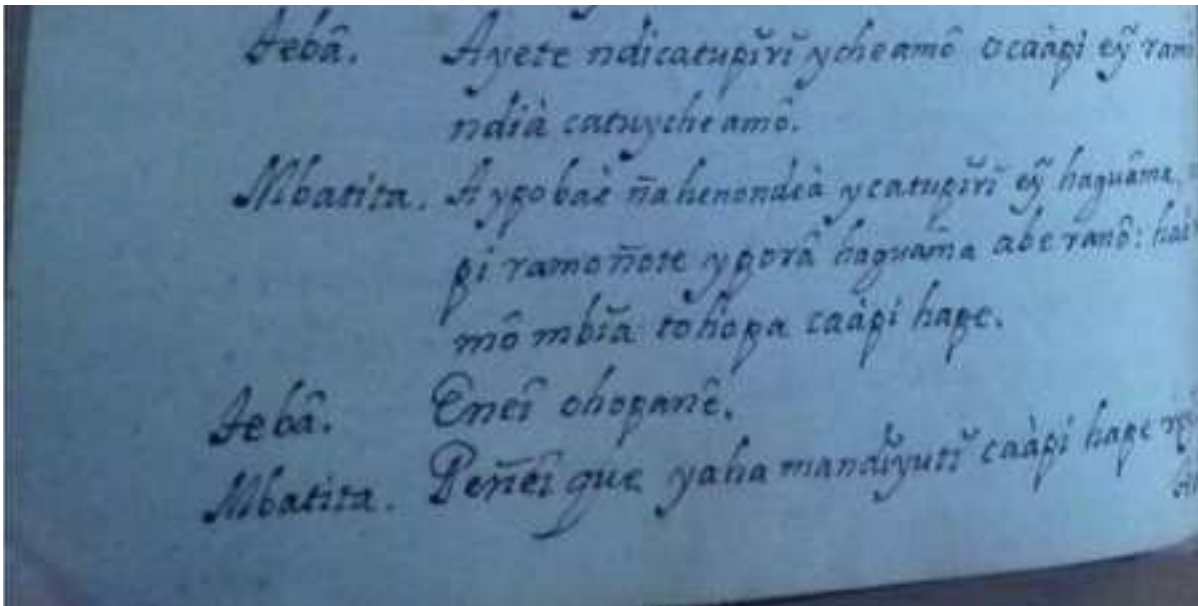 Aebâ. Ayete ndicatupĭrĭ ycheamô ocaàpi eỹ
ndià catuycheamô.
Mbatita. Aypobaè ñahenondeà ycatupĭrĭ eỹ haguâma,
pi ramo ñote yporâ haguâma abe ramô:
mô mbĭa tohopa caàpi hape.
Aebâ. Eneî ohopanê.
Mbatita. Peñeî que yaha mandĭyutĭ caàpi hape